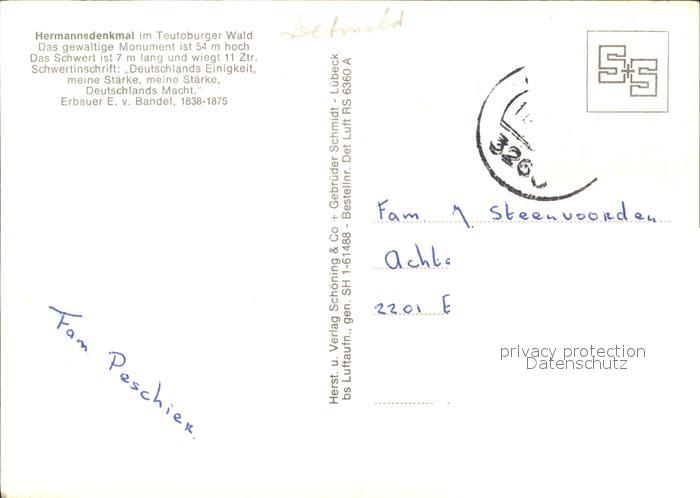 Hermannsdenkmal im Teutoburger Wald
Das gewaltige Monument ist 54 m hoch
Das Schwert ist 7 m lang und wiegt 11 Ztr.
Schwertinschrift: „Deutschlands Einigkeit,
meine Stärke, meine Stärke,
Deutschlands Macht."
Erbauer E. v. Bandel, 1838-1875
Detmold
Fam Peschier
Herst. u. Verlag Schöning & Co + Gebrüder Schmidt - Lübeck
bs Luftaufn., gen. SH 1-61488 - Bestellnr. Det Luft RS 6360 A
S+S
Fam. Steenvoorden
2201 E
privacy protection
Datenschutz